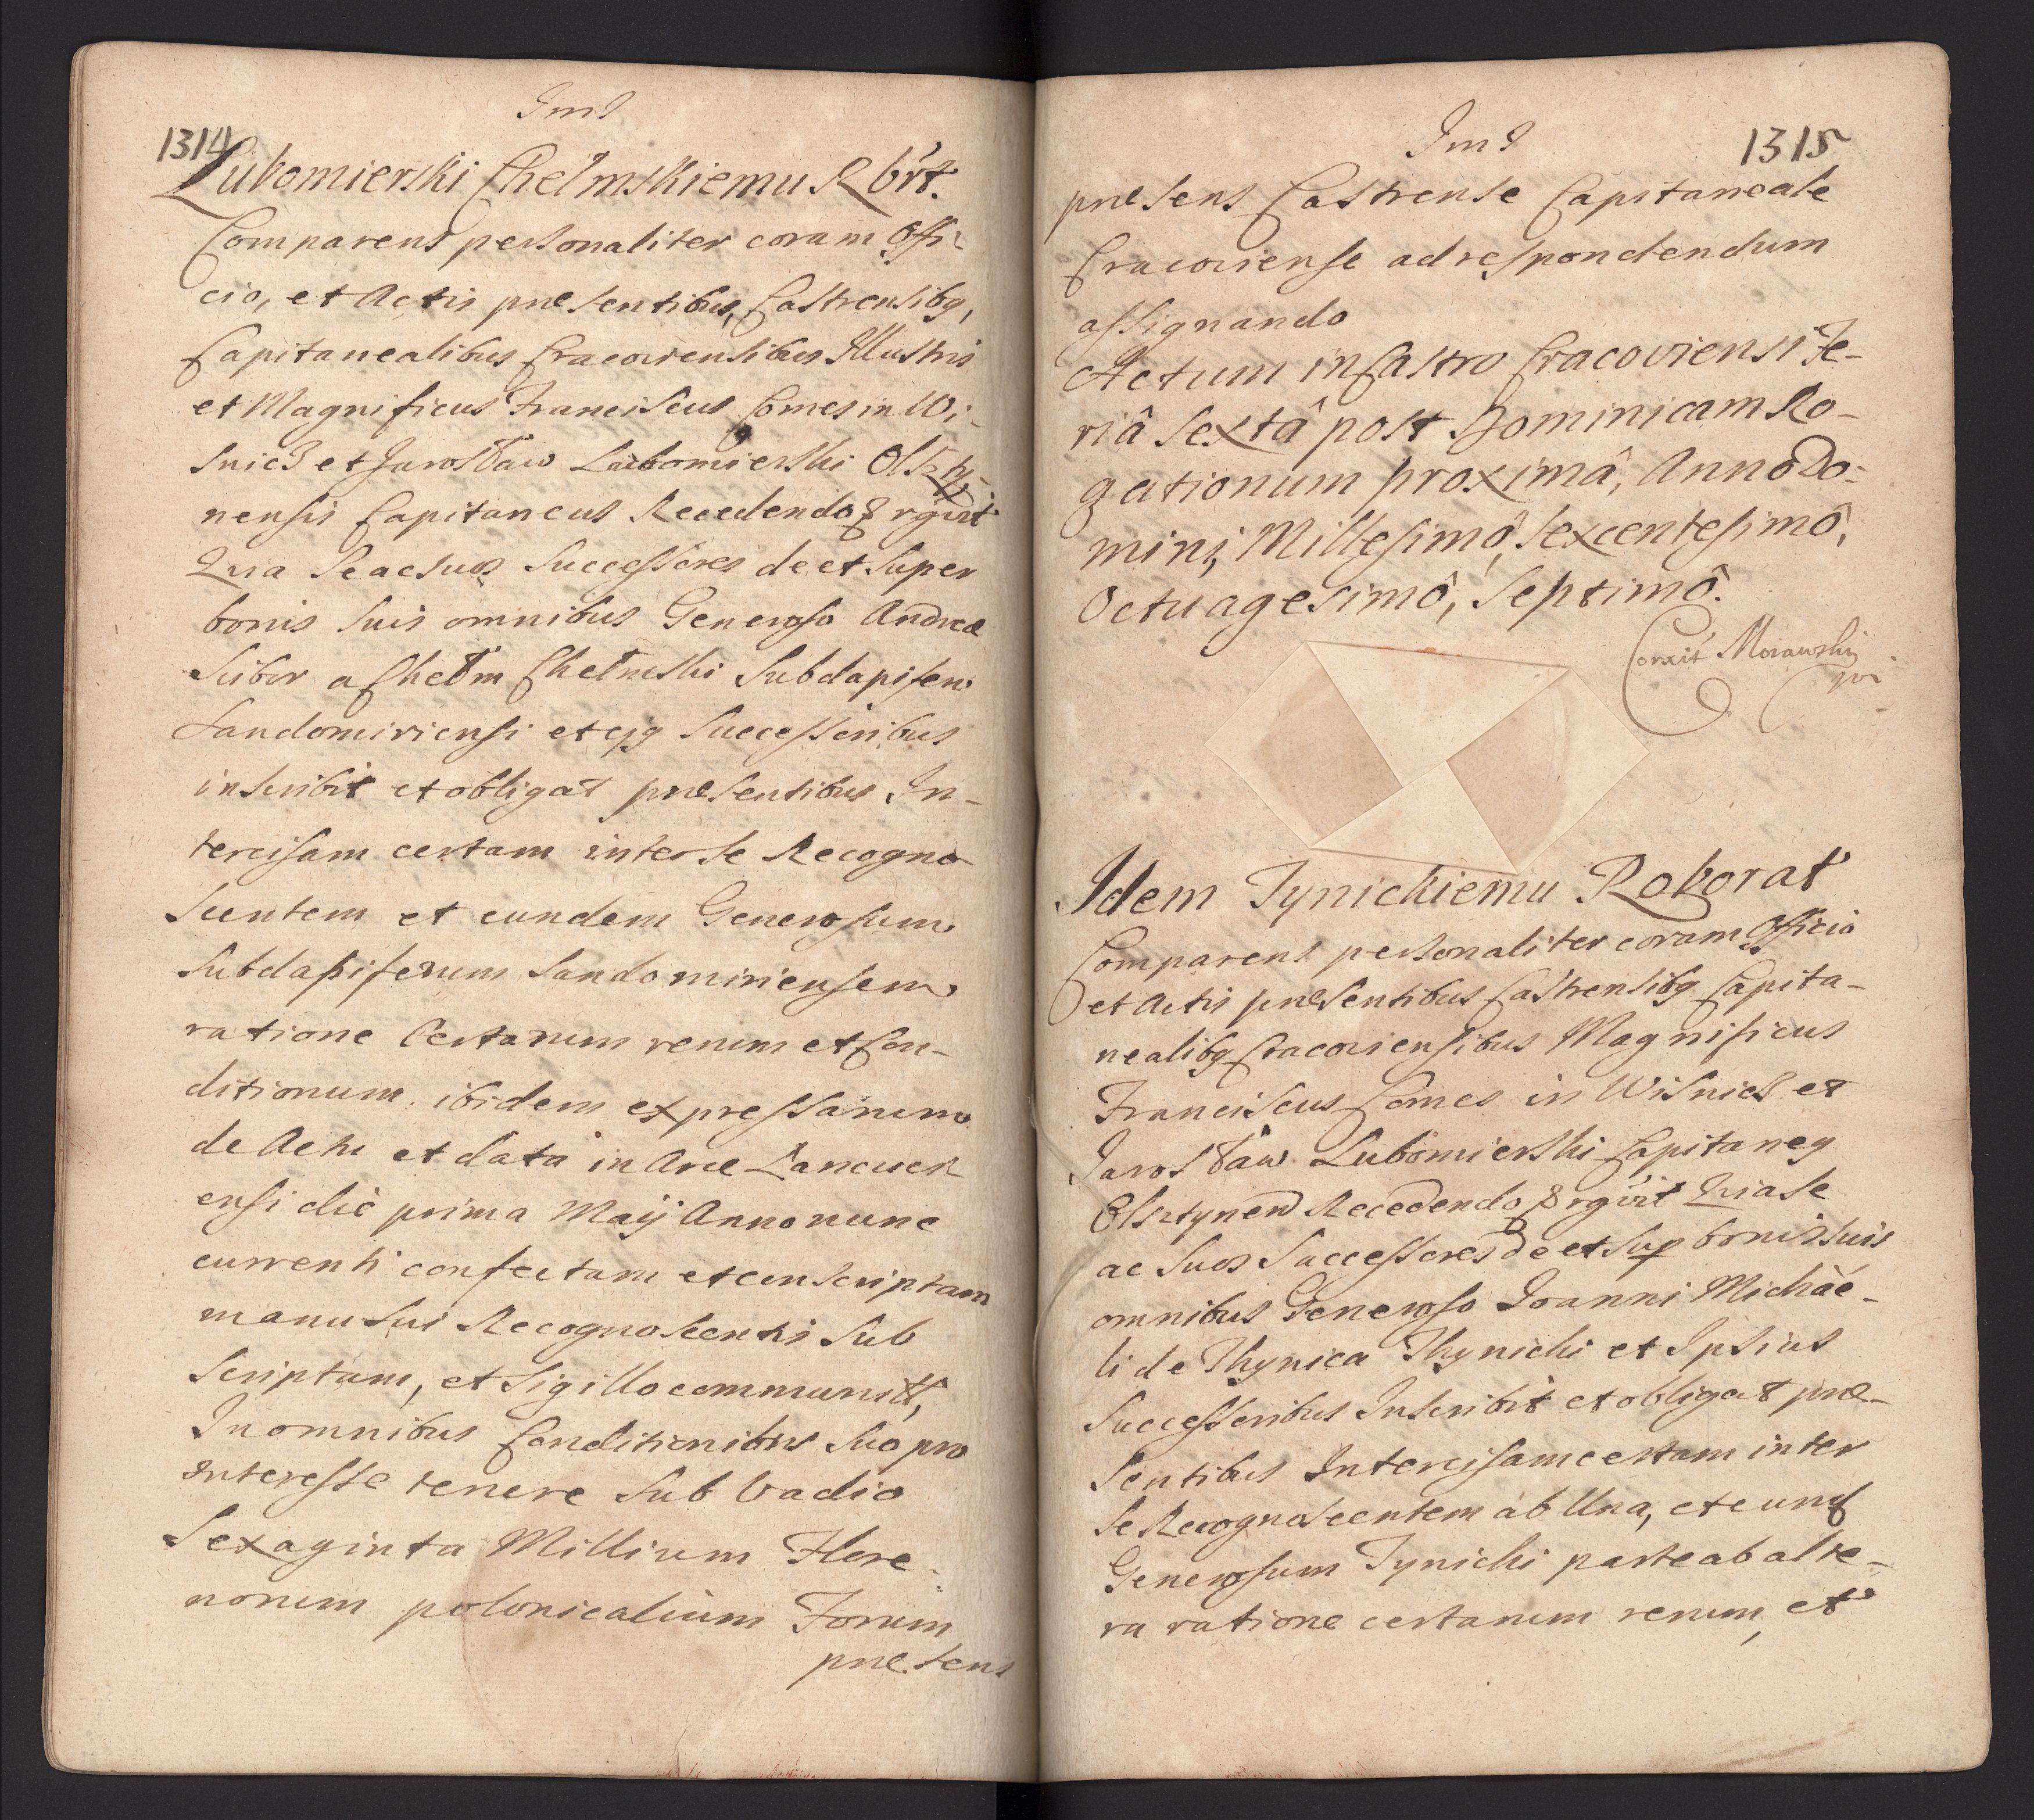 Jmd
1314
Lubomierski Chełmskiemu Rbrt.
Comparens personaliter coram Offi-
cio, et Actis præsentibus, Castrensibq,
Capitanealibus Cracoviensibus Illustris
et Magnificus Franciscus Comes in Wi-
snicz et Jarosław Lubomierski Olszty-
nensis Capitaneus Recedendo
Quia Se ac Suos Successores de et Super
bonis Suis omnibus Generoso Andreæ
Scibor a Chełm Chełmski Subdapifero
Sandomiriensi et ejq Successoribus
inscribit et obligat præsentibus In-
tercisam certam inter se Recogno-
scentem et eundem Generosum
Subdapiferum Sandomiriensem
ratione Certarum rerum et Con-
ditionum ibidem expressarum
de Actu et data in Arce Lancucz
ensi die prima Maij Anno nunc
currenti confectam et conscriptam
manu Sui Recognoscentis Sub
Scriptam, et Sigillo communitt,
In omnibus Conditionibus Suo pro
interesse tenere Sub Vadio
Sexaginta Millium Flore-
norum polonicalium Forum
præsens
Jmd
1315
præsens Castrense Capitaneale
Cracoviense ad respondendum
assignando
Actum in Castro Cracoviensi Fe-
riâ Sextâ post Dominicam Ro-
gationum proximâ, Anno Do-
mini, Millesimô, Sexcentesimô,
Octuagesimô, Septimô.
Corxit Morawski
Idem Tynickiemu Roborat
Comparens personaliter coram Officio
et Actis præsentibus Castrensibq Capita-
nealibq Cracoviensibus Magnificus
Franciscus Comes in Wisnicz et
Jarosław Lubomierski Capitaneq
Olsztynen Recedendo Quia Se
ac Suos Successores de et Sup bonis Suis
omnibus Generoso Joanni Michaé-
li de Thynica Thynicki et Ipsius
Successoribus Inscribit et obligat præ-
sentibus Intercisam certam inter
Se Recognoscentem ab Una, et eund
Generosum Tynicki parte ab alte-
ra ratione certarum rerum, et